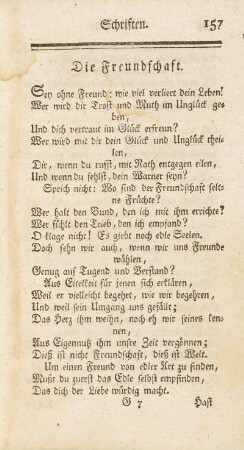 Schriften. 157
Die Freundschaft.
Sey ohne Freund: wie viel verliert dein Leben!
Wer wird dir Trost und Muth im Unglück ge-
ben,
Und dich vertraut im Glück erfreun?
Wer wird mit dir dein Glück und Unglück thei-
len,
Dir, wenn du rufst, mit Rath entgegen eilen,
Und wenn du fehlst, dein Warner seyn?
Sprich nicht: Wo sind der Freundschaft selt-
ne Früchte?
Wer hält den Bund, den ich mit ihm errichte?
Wer fühlt den Trieb, den ich empfand?
O klage nicht! Es giebt noch edle Seelen.
Doch sehn wir auch, wenn wir uns Freunde
wählen,
Genug auf Tugend und Verstand?
Aus Eitelkeit für jenen sich erklären,
Weil er vielleicht begehrt, wie wir begehren,
Und weil sein Umgang uns gefällt;
Das Herz ihm weihn, noch eh wir seines ken-
nen,
Aus Eigennutz ihm unsre Zeit vergönnen;
Dieß ist nicht Freundschaft, dieß ist Welt.
Um einen Freund von edler Art zu finden,
Mußt du zuerst das Edle selbst empfinden,
Das dich der Liebe würdig macht.
G 7 Hast